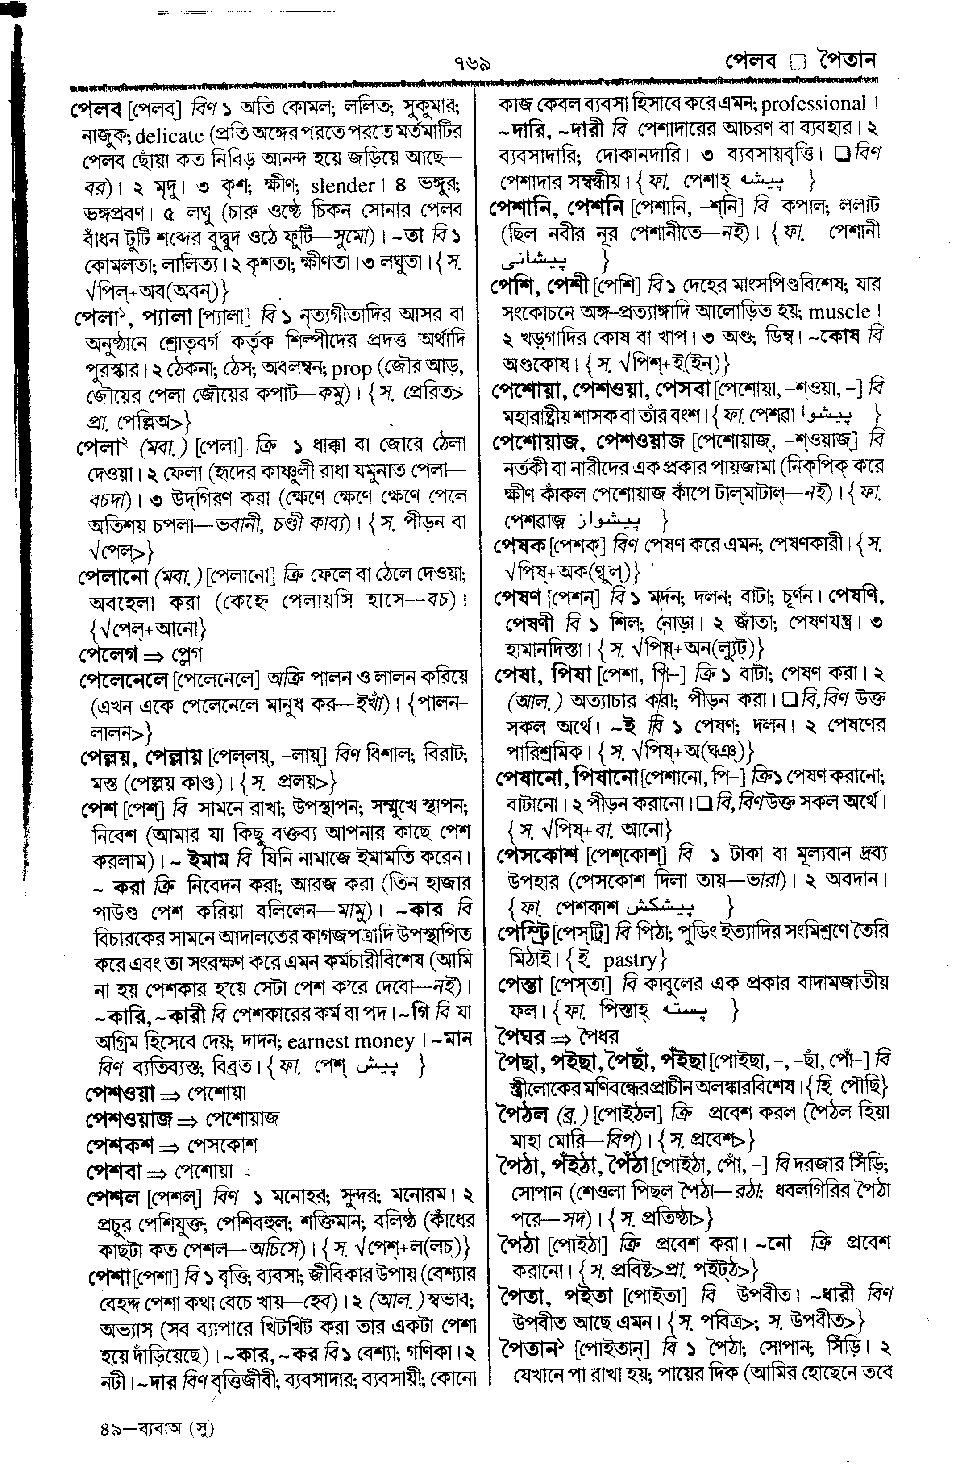 ৭৬৯
পেলব □ পৈতান
পেলব [পেলব্] বিণ ১ অতি কোমল; ললিত; সুকুমার;
নাজুক; delicate (প্রতি অঙ্গের পরতে পরতে মর্তমাটির
পেলব ছোঁয়া কত নিবিড় আনন্দ হয়ে জড়িয়ে আছে—
বর)। ২ মৃদু। ৩ কৃশ; ক্ষীণ; slender। ৪ ভঙ্গুর;
ভঙ্গপ্রবণ। ৫ লঘু (চারু ওষ্ঠে চিকন সোনার পেলব
বাঁধন টুটি শব্দের বুদ্বুদ ওঠে ফুটি—সুমো)। ~তা বি ১
কোমলতা; লালিত্য। ২ কৃশতা; ক্ষীণতা। ৩ লঘুতা। {স.
√পিল্+অব(অবন্)}
পেলা১, প্যালা [প্যালা] বি ১ নৃত্যগীতাদির আসর বা
অনুষ্ঠানে শ্রোতৃবর্গ কর্তৃক শিল্পীদের প্রদত্ত অর্থাদি
পুরস্কার। ২ ঠেকনা; ঠেস; অবলম্বন; prop (জৌর আড়,
জৌয়ের পেলা জৌয়ের কপাট—কমু)। {স. প্রেরিত>
প্রা. পেল্লিঅ>}
পেলা২ (মবা.) [পেলা] ক্রি ১ ধাক্কা বা জোরে ঠেলা
দেওয়া। ২ ফেলা (হৃদের কাঞ্চুলী রাধা যমুনাত পেলা—
বচদা)। ৩ উদ্‌গিরণ করা (ক্ষেণে ক্ষেণে ক্ষেণে পেলে
অতিশয় চপলা—ভবানী, চণ্ডী কাব্য)। {স. পীড়ন বা
√পেল্>}
পেলানো (মবা.) [পেলানো] ক্রি ফেলে বা ঠেলে দেওয়া;
অবহেলা করা (কেহ্নে পেলায়সি হাসে—বচ)।
{√পেল্+আনো}
পেলেগ ⇒ প্লেগ
পেলেনেলে [পেলেনেলে] অক্রি পালন ও লালন করিয়ে
(এখন একে পেলেনেলে মানুষ কর—ইখাঁ)। {পালন-
লালন>}
পেল্লয়, পেল্লায় [পেল্‌লয়্, –লায়্] বিণ বিশাল; বিরাট;
মস্ত (পেল্লয় কাণ্ড)। {স. প্রলয়>}
পেশ [পেশ্] বি সামনে রাখা; উপস্থাপন; সম্মুখে স্থাপন;
নিবেশ (আমার যা কিছু বক্তব্য আপনার কাছে পেশ
করলাম)। ~ ইমাম বি যিনি নামাজে ইমামতি করেন।
~ করা ক্রি নিবেদন করা; আরজ করা (তিন হাজার
পাউণ্ড পেশ করিয়া বলিলেন—মামু)। ~কার বি
বিচারকের সামনে আদালতের কাগজপত্রাদি উপস্থাপিত
করে এবং তা সংরক্ষণ করে এমন কর্মচারীবিশেষ (আমি
না হয় পেশকার হ'য়ে সেটা পেশ ক'রে দেবো—নই)।
~কারি, ~কারী বি পেশকারের কর্ম বা পদ। ~গি বি যা
অগ্রিম হিসেবে দেয়; দাদন; earnest money। ~মান
বিণ ব্যতিব্যস্ত; বিব্রত। {ফা. পেশ্ پیش }
পেশওয়া ⇒ পেশোয়া
পেশওয়াজ ⇒ পেশোয়াজ
পেশকশ ⇒ পেসকোশ
পেশবা ⇒ পেশোয়া
পেশল [পেশল্] বিণ ১ মনোহর; সুন্দর; মনোরম। ২
প্রচুর পেশিযুক্ত; পেশিবহুল; শক্তিমান; বলিষ্ঠ (কাঁধের
কাছটা কত পেশল—অচিসে)। {স. √পেশ্+ল(লচ্)}
পেশা [পেশা] বি ১ বৃত্তি; ব্যবসা; জীবিকার উপায় (বেশ্যার
বেহদ্দ পেশা কথা বেচে খায়—হেব)। ২ (আল.) স্বভাব;
অভ্যাস (সব ব্যাপারে খিটখিট করা তার একটা পেশা
হয়ে দাঁড়িয়েছে)। ~কার, ~কর বি ১ বেশ্যা; গণিকা। ২
নটী। ~দার বিণ বৃত্তিজীবী; ব্যবসাদার; ব্যবসায়ী; কোনো
৪৯—ব্যবঃঅ (সু)
কাজ কেবল ব্যবসা হিসাবে করে এমন; professional।
~দারি, ~দারী বি পেশাদারের আচরণ বা ব্যবহার। ২
ব্যবসাদারি; দোকানদারি। ৩ ব্যবসায়বৃত্তি। □ বিণ
পেশাদার সম্বন্ধীয়। {ফা. পেশাহ্ پیشه }
পেশানি, পেশনি [পেশানি, –শ্‌নি] বি কপাল; ললাট
(ছিল নবীর নূর পেশানীতে—নই)। {ফা. পেশানী
پیشانی }
পেশি, পেশী [পেশি] বি ১ দেহের মাংসপিণ্ডবিশেষ; যার
সংকোচনে অঙ্গ-প্রত্যঙ্গাদি আলোড়িত হয়; muscle।
২ খড়্গাদির কোষ বা খাপ। ৩ অণ্ড; ডিম্ব। ~কোষ বি
অণ্ডকোষ। {স. √পিশ্+ই(ইন্)}
পেশোয়া, পেশওয়া, পেসবা [পেশোয়া, –শ্ওয়া, –] বি
মহারাষ্ট্রীয় শাসক বা তাঁর বংশ। {ফা. পেশৱা پیشوا }
পেশোয়াজ, পেশওয়াজ [পেশোয়াজ্, –শ্ওয়াজ্] বি
নর্তকী বা নারীদের এক প্রকার পায়জামা (নিক্‌পিক্‌ করে
ক্ষীণ কাঁকল পেশোয়াজ কাঁপে টাল্‌মাটাল্—নই)। {ফা.
পেশৱাজ় پیشواز }
পেষক [পেশক্] বিণ পেষণ করে এমন; পেষণকারী। {স.
√পিষ্+অক(ণ্বুল্)}
পেষণ [পেশন্] বি ১ মর্দন; দলন; বাটা; চূর্ণন। পেষণি,
পেষণী বি ১ শিল; নোড়া। ২ জাঁতা; পেষণযন্ত্র। ৩
হামানদিস্তা। {স. √পিষ্+অন(ল্যুট্)}
পেষা, পিষা [পেশা, পি–] ক্রি ১ বাটা; পেষণ করা। ২
(আল.) অত্যাচার করা; পীড়ন করা। □ বি, বিণ উক্ত
সকল অর্থে। ~ই বি ১ পেষণ; দলন। ২ পেষণের
পারিশ্রমিক। {স. √পিষ্+অ(ঘঞ্)}
পেষানো, পিষানো [পেশানো, পি–] ক্রি ১ পেষণ করানো;
বাটানো। ২ পীড়ন করানো। □ বি, বিণ উক্ত সকল অর্থে।
{স. √পিষ্+বা. আনো}
পেসকোশ [পেশ্‌কোশ্] বি ১ টাকা বা মূল্যবান দ্রব্য
উপহার (পেসকোশ দিলা তায়—ভারা)। ২ অবদান।
{ফা. পেশকাশ پیشکش }
পেস্ট্রি [পেস্‌ট্রি] বি পিঠা; পুডিং ইত্যাদির সংমিশ্রণে তৈরি
মিঠাই। {ই. pastry}
পেস্তা [পেস্‌তা] বি কাবুলের এক প্রকার বাদামজাতীয়
ফল। {ফা. পিস্তাহ্ پسته }
পৈঘর ⇒ পৈধর
পৈছা, পইছা, পৈছাঁ, পঁইছা [পোইছা, –, –ছাঁ, পোঁ–] বি
স্ত্রীলোকের মণিবন্ধের প্রাচীন অলঙ্কারবিশেষ। {হি. পৌছি}
পৈঠল (ব্র.) [পোইঠল] ক্রি প্রবেশ করল (পৈঠল হিয়া
মাহা মোরি—বিপ)। {স. প্রবেশ>}
পৈঠা, পঁইঠা, পৈঁঠা [পোইঠা, পোঁ, –] বি দরজার সিঁড়ি;
সোপান (শেওলা পিছল পৈঠা—রঠা; ধবলগিরির পৈঠা
পরে—সদ)। {স. প্রতিষ্ঠা>}
পৈঠা [পোইঠা] ক্রি প্রবেশ করা। ~নো ক্রি প্রবেশ
করানো। {স. প্রবিষ্ট>প্রা. পইট্‌ঠ>}
পৈতা, পইতা [পোইতা] বি উপবীত। ~ধারী বিণ
উপবীত আছে এমন। {স. পবিত্র>; স. উপবীত>}
পৈতান১ [পোইতান্] বি ১ পৈঠা; সোপান; সিঁড়ি। ২
যেখানে পা রাখা হয়; পায়ের দিক (আমির হোছেনে তবে